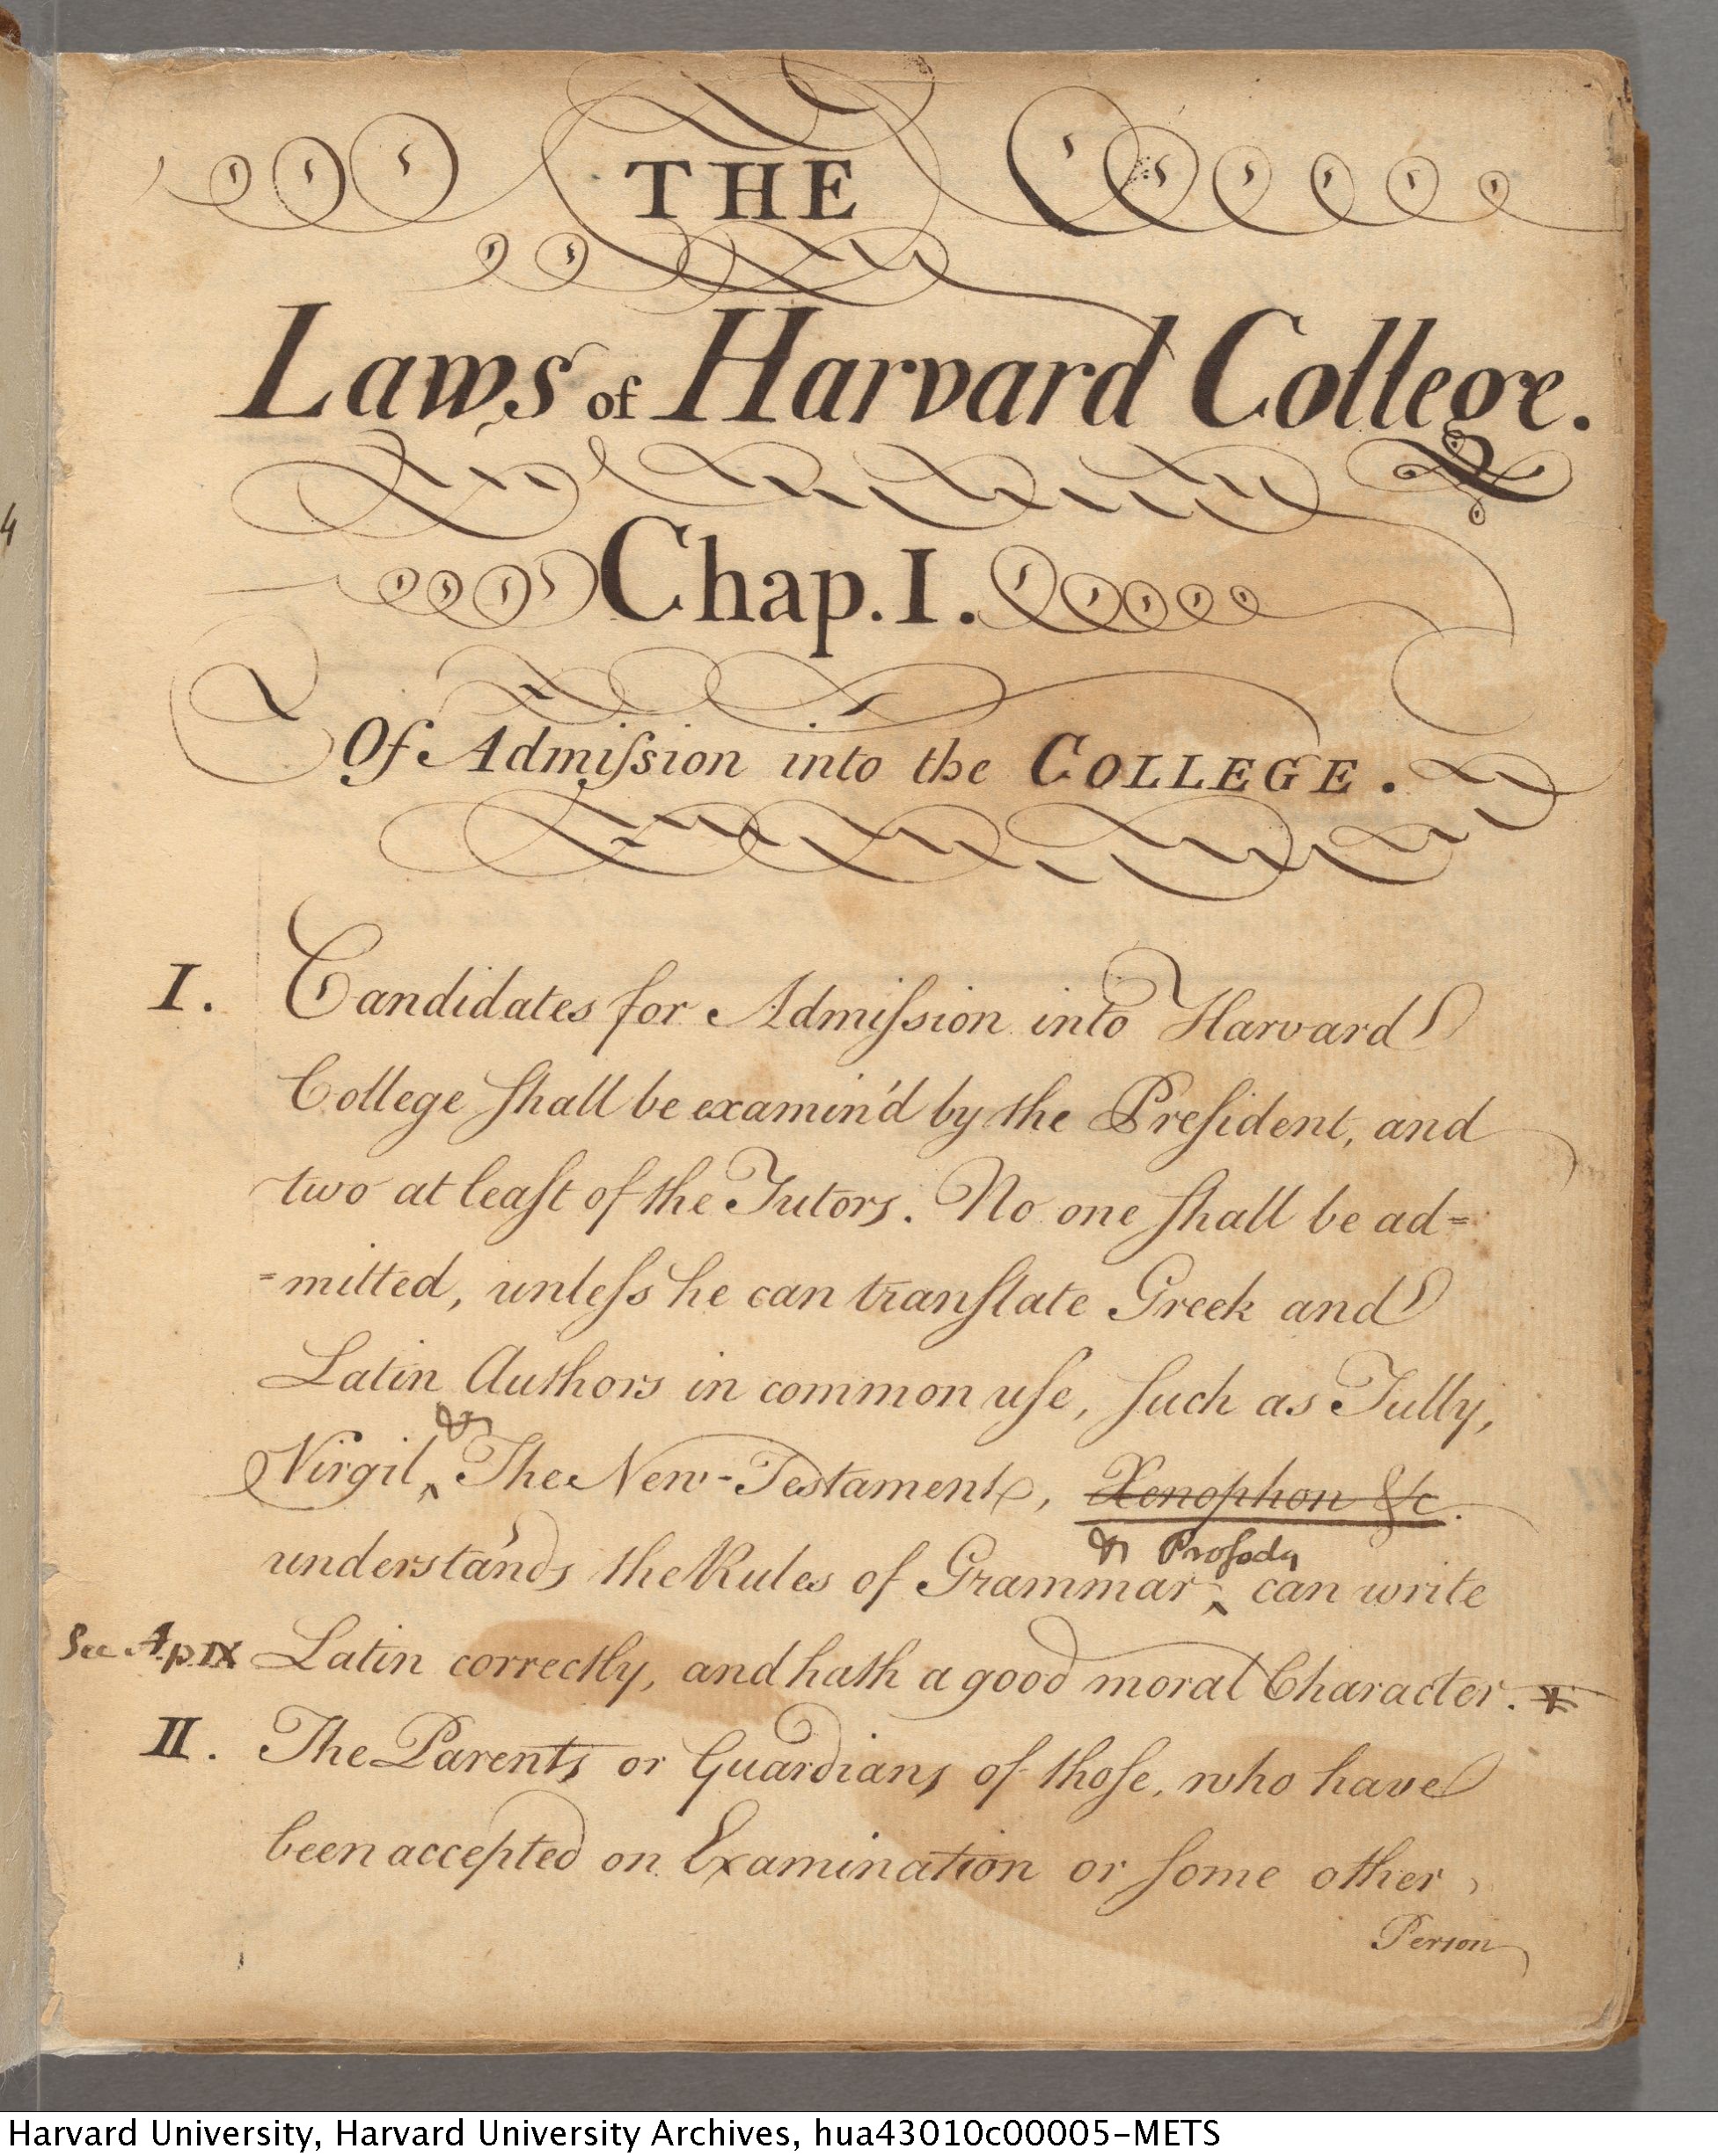 4
THE
Laws of Harvard College.
Chap. I.
Of Admiſsion into the COLLEGE.
I. Candidates for Admiſsion into Harvard
College ſhall be examin'd by the Preſident, and
two at leaſt of the Tutors. No one ſhall be ad=
=mitted, unleſs he can tranſlate Greek and
Latin Authors in common uſe, ſuch as Tully,
&
Virgil, The New-Testament, Xenophon &c.
& Proſody
understands the Rules of Grammar, can write
See Ap. IX Latin correctly, and hath a good moral Character. *
II. The Parents or Guardians of thoſe, who have
been accepted on Examination or ſome other
Person
Harvard University, Harvard University Archives, hua43010c00005-METS